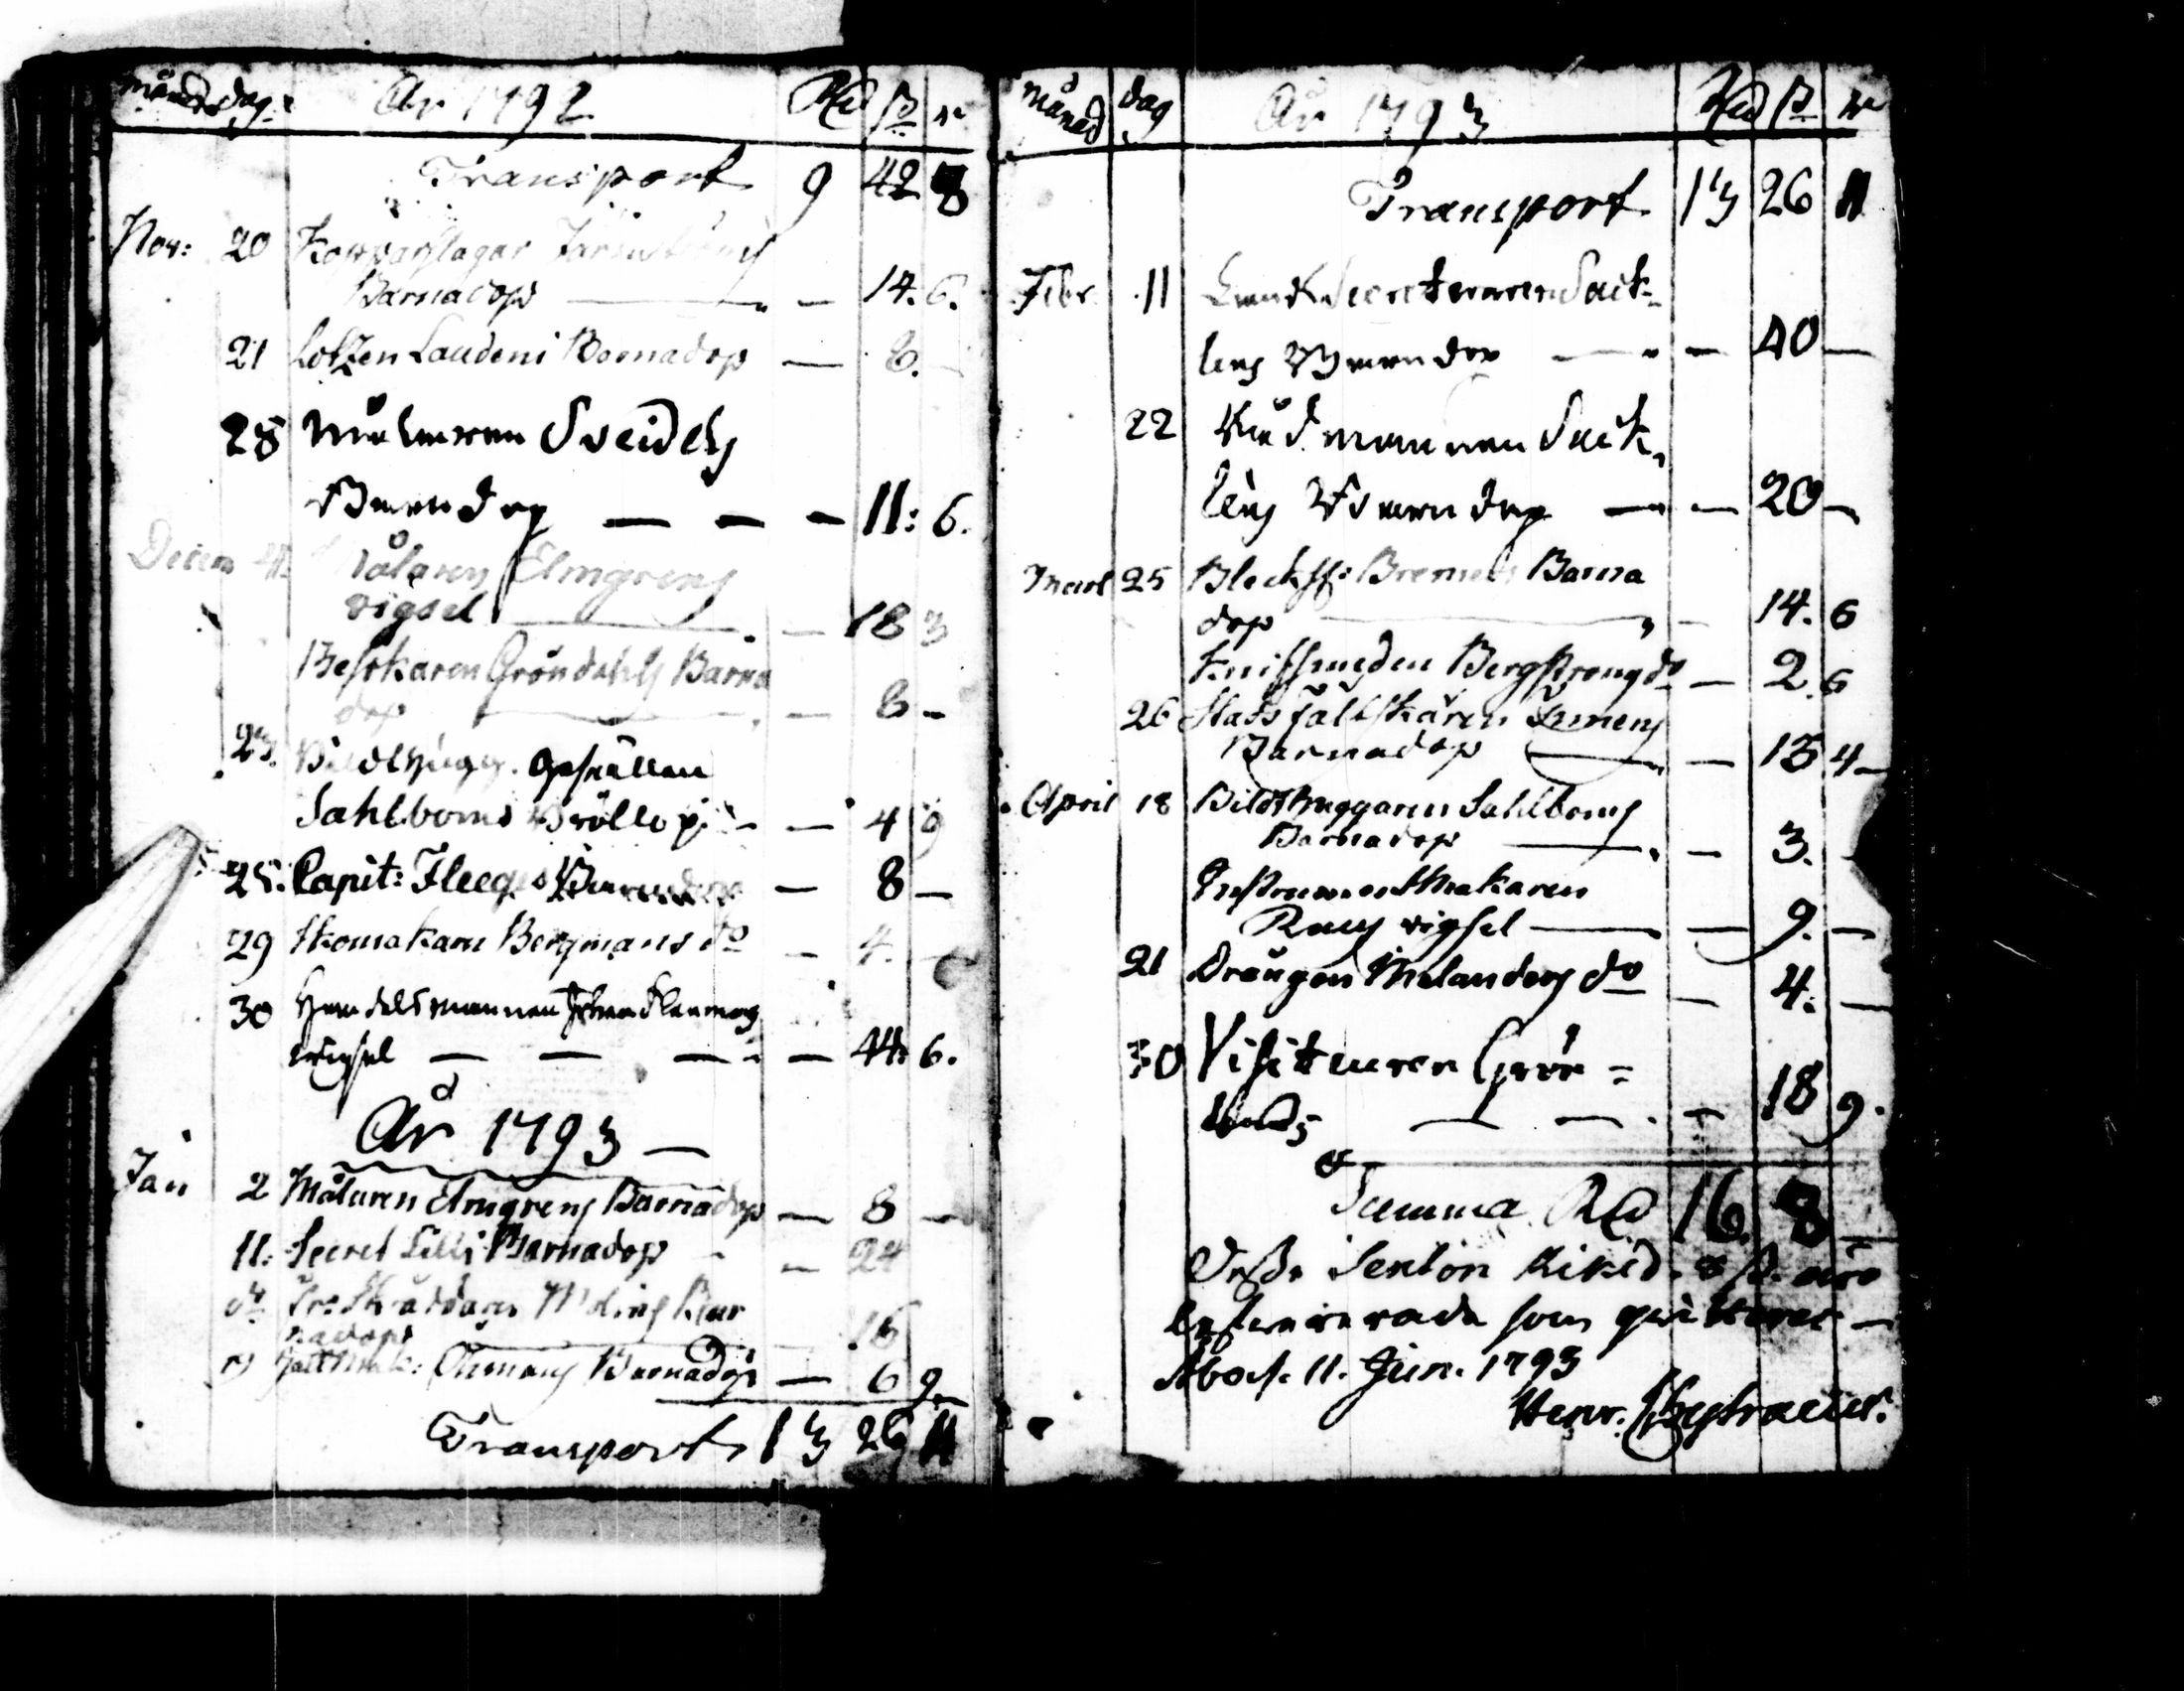 Månad dag: År 1792 Rd ß rr
Transport 9 42 8
Nov: 20 Kopparslagar
Barnadop — — 14. 6.
21 Lotzen Laudeni Barnadop — 8. —
28 Målaren Sveidels
Barndop — — — 11: 6.
Decem Målaren Elmgrens
vigsel — — 18 3
Besökaren Gröndahls Barna
dop — — 8 —
23. Bildthugg. Gesällen
Sahlboms Bröllop — — 4 9
25. Capit: Fleeges Barndop — 8 —
29 Skomakarn Bergmans do — 4. —
30 Handelsmannen
wigsel — — — — 44: 6.
År 1793 —
Jan 2 Målaren Elmgrens Barnadop — 8 —
11. Secret Lilli Barnadop — 24
do Skräddarn Molins Bar
nadop — 16
Öhmans Barnadop — 6 9.
Transport 13 26 11
Månad dag År 1793 Rd ß rr
Transport 13 26 11
Febr. 11 Landt Secreteraren Sack=
lens Barndop — — 40 —
22 Rådmannen Sack,
lens Barndop — — 20 —
Mart 25 Blecksl: Bremers Barna
dop — — 14. 6
Knifsmeden Bergströms do — 2. 6
26 Stads fältskären
Barnadop — — 13 4 —
April 18 Bildthuggaren Sahlboms
Barnadop — — 3. —
Instrumentmakaren
vigsel — — 9. —
21 Drängen Melanders do — 4. —
30 Visiteuren Grön=
— — — 18 9.
Summa Rd 16. 8 —
Desse Sexton Riksd. 8 ß. äro
som qvitteras —
Åbo d. 11. Jun. 1793
Henr.